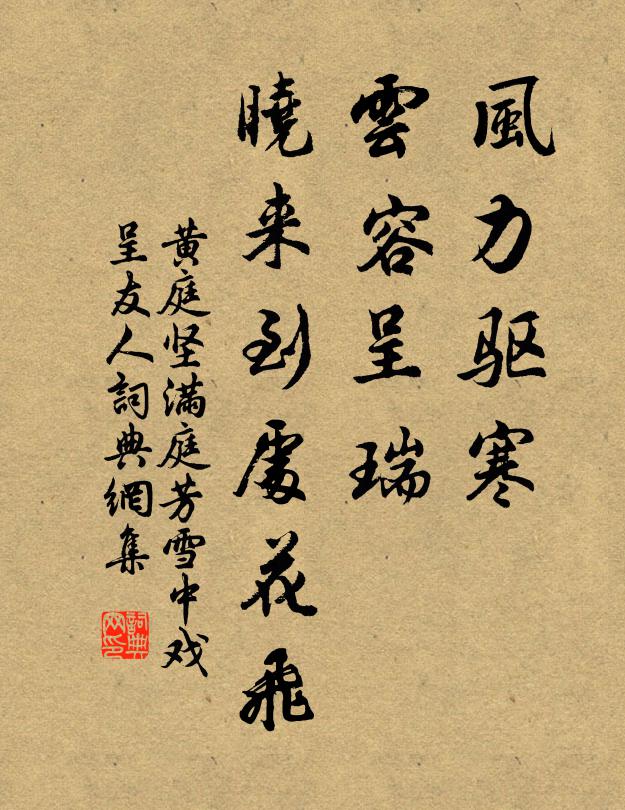 風力驱寒
雲容呈瑞
曉来到處花飛
黄庭坚满庭芳雪中戏
呈友人詞典網集
詞典網印